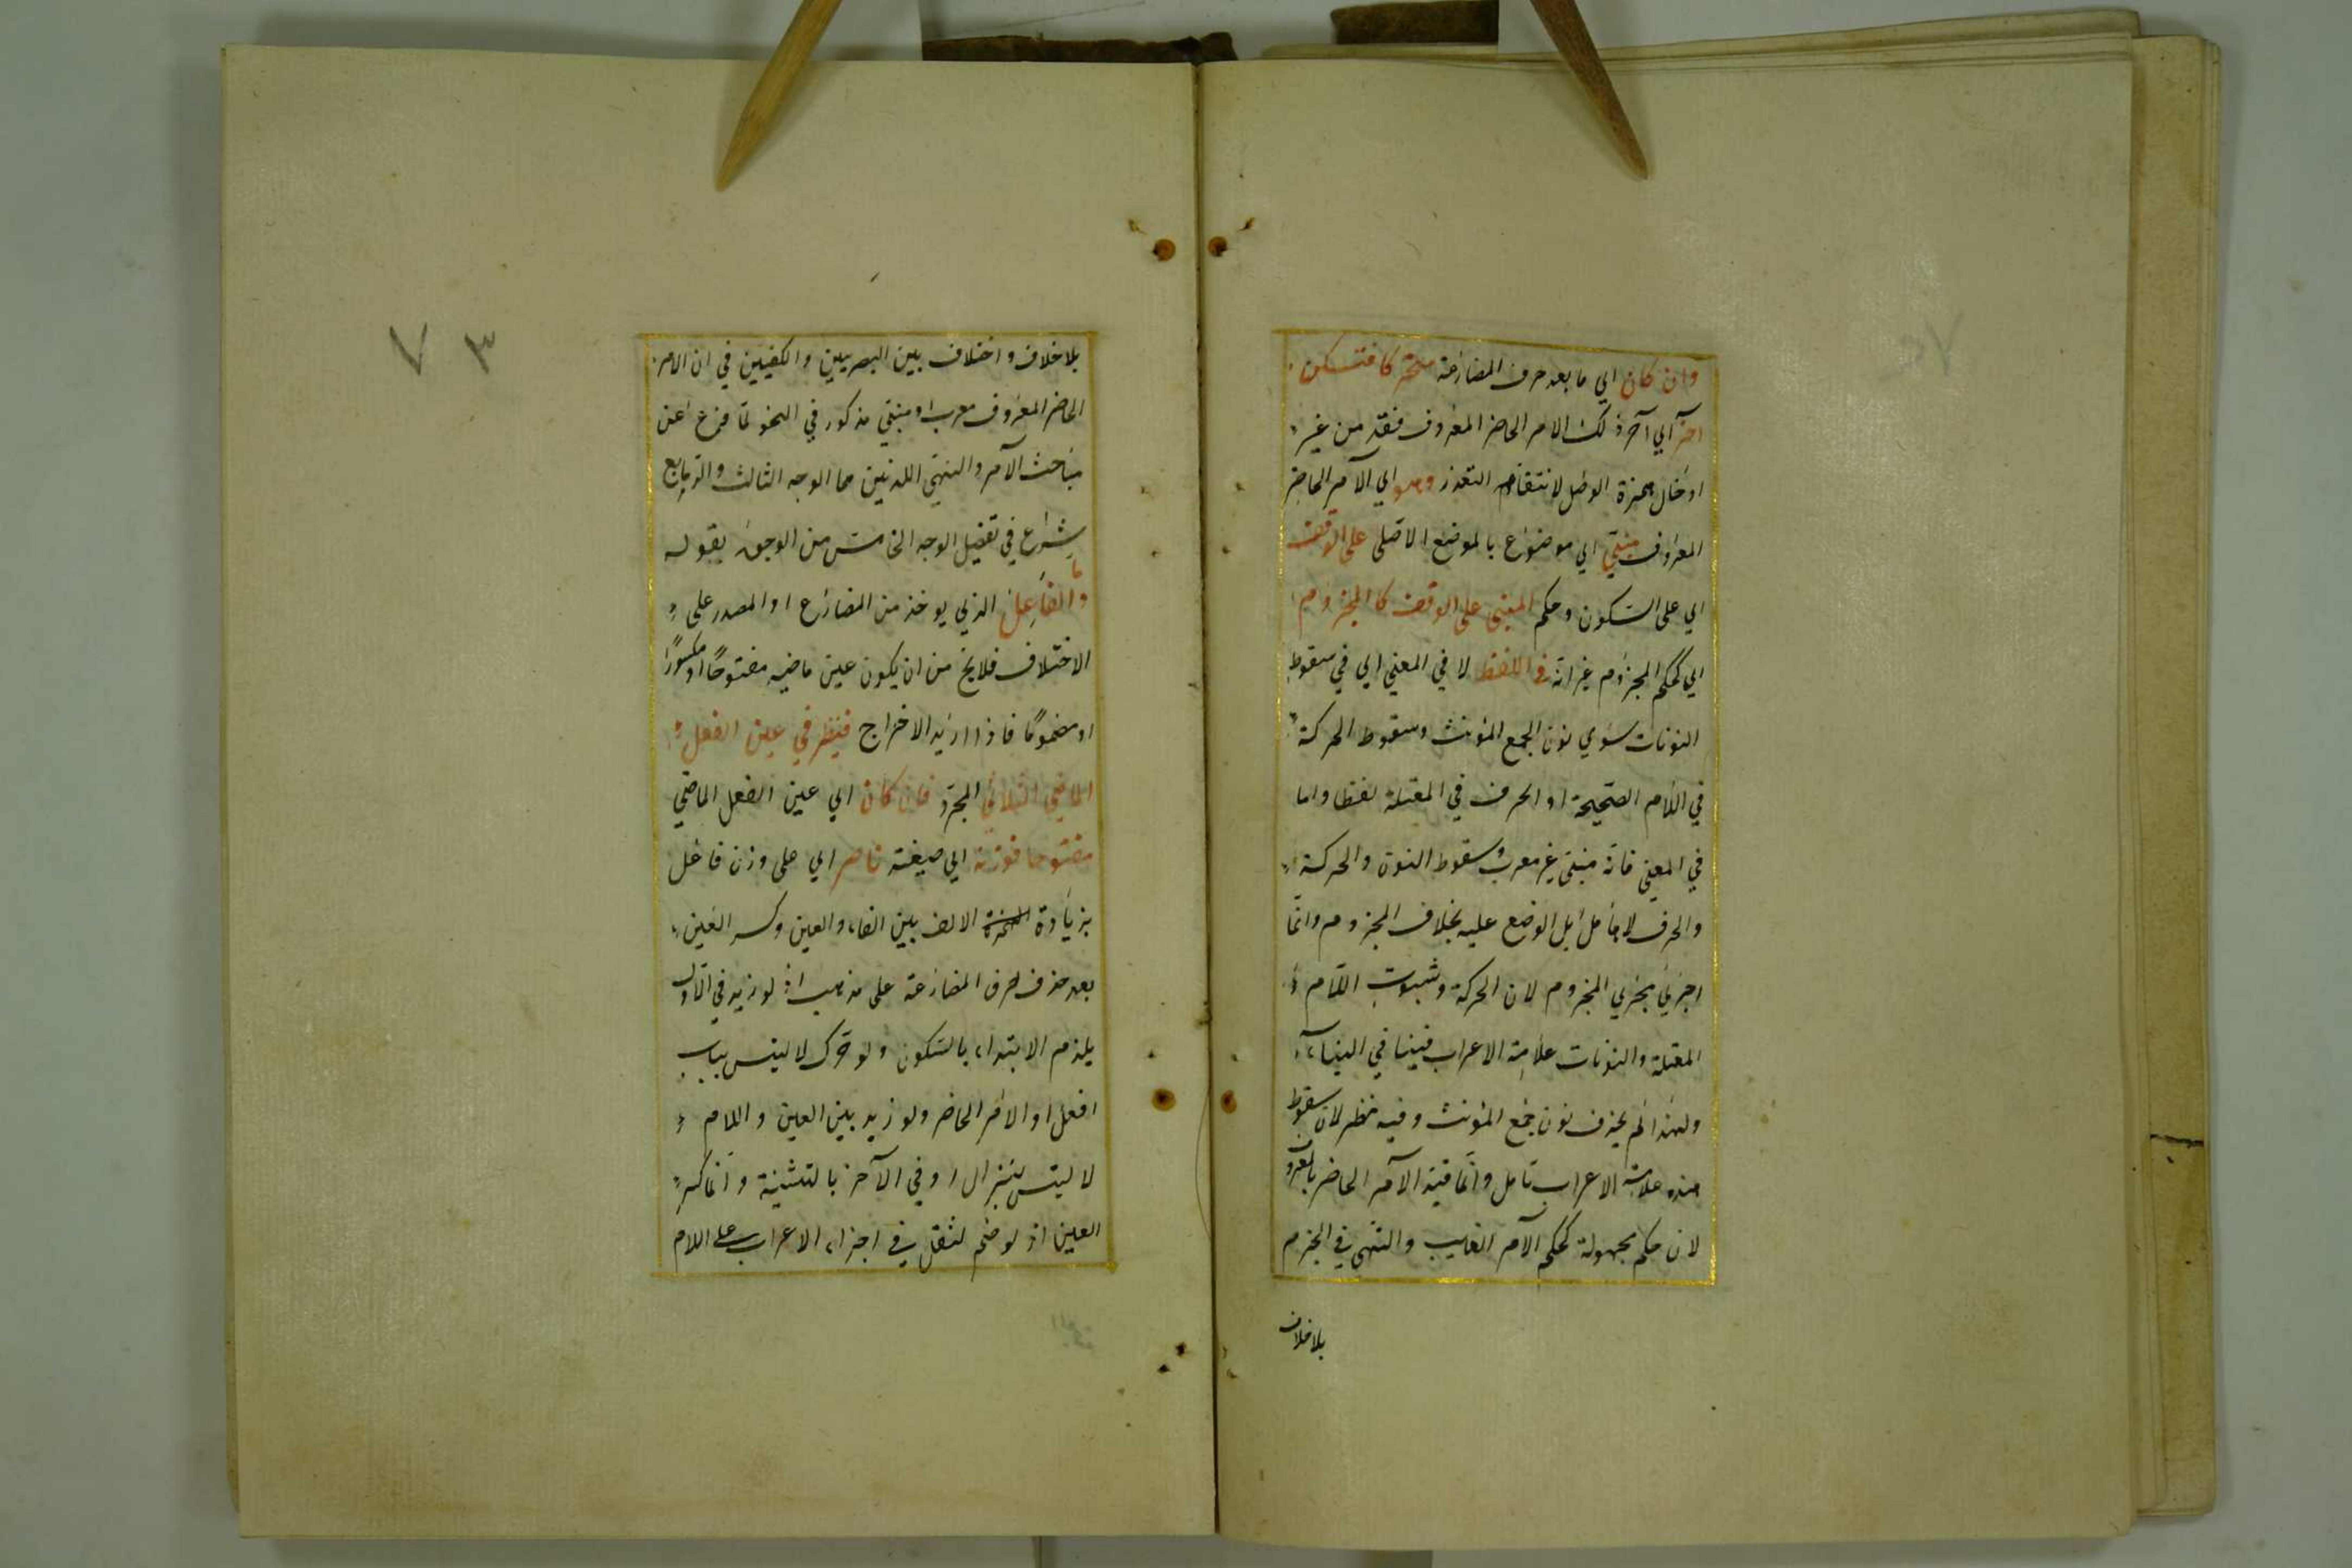 وان كان اي ما بعد حرف المضارعة متحركا فتسكن
آخره اي آخر ذلك الامر الحاضر المعروف فقد من غير
ادخال همزة الوصل لانتفاء التعذر وهو اي الامر الحاضر
المعروف مبني اي موضوع بالموضع الاصلي على الوقف
اي على السكون وحكم المبني على الوقف كالمجزوم
اي كحكم المجزوم غير انه في اللفظ لا في المعني اي في سقوط
النونات سوي نون الجمع المؤنث وسقوط الحركة
في اللام الصحيحة او الحرف في المعتلة لفظا واما
في المعني فانه مبني غير معرب وسقوط النون والحركة
والحرف لا بل الوضع عليه بخلاف المجزوم وانما
اجري مجري المجزوم لان الحركة وثبوت اللام
المعتلة والنونات علامة الاعراب في البناء
ولهذا لم يحذف نون جمع المؤنث وفيه نظر لان سقوط
هذه علامة الاعراب تامل وانما قيد الامر الحاضر بالمعروف
لان حكم مجهولة كحكم الامر الغايب والنهي في الجزم
بلا خلاف
٧٣
بلا خلاف واختلاف بين البصريين والكوفيين في ان الامر
الحاضر المعروف معرب او مبني مذكور في النحو لما فرغ عن
مباحث الامر والنهي اللذين هما الوجه الثالث والرابع
شرع في تفصيل الوجه الخامس من الوجوه بقوله
واما الفاعل الذي يوخذ من المضارع او المصدر على
الاختلاف فلا يخ من ان يكون عين ماضيه مفتوحا او مكسورا
او مضموما فاذا اريد الاخراج فينظر في عين الفعل
الماضي الثلاثي المجرد فان كان اي عين الفعل الماضي
مفتوحا فوزنه اي صيغته ناصر اي على وزن فاعل
بزيادة الالف بين الفاء والعين وكسر العين
بعد حذف حرف المضارعة على مذهب اذ لو زيد في الاول
يلزم الابتداء بالسكون ولو حرك لالتبس بباب
افعل او الامر الحاضر ولو زيد بين العين واللام
لالتبس بنزال او في الآخر بالتثنية وانما كسر
العين اذ لو ضم لثقل في اجزاء الاعراب على اللام